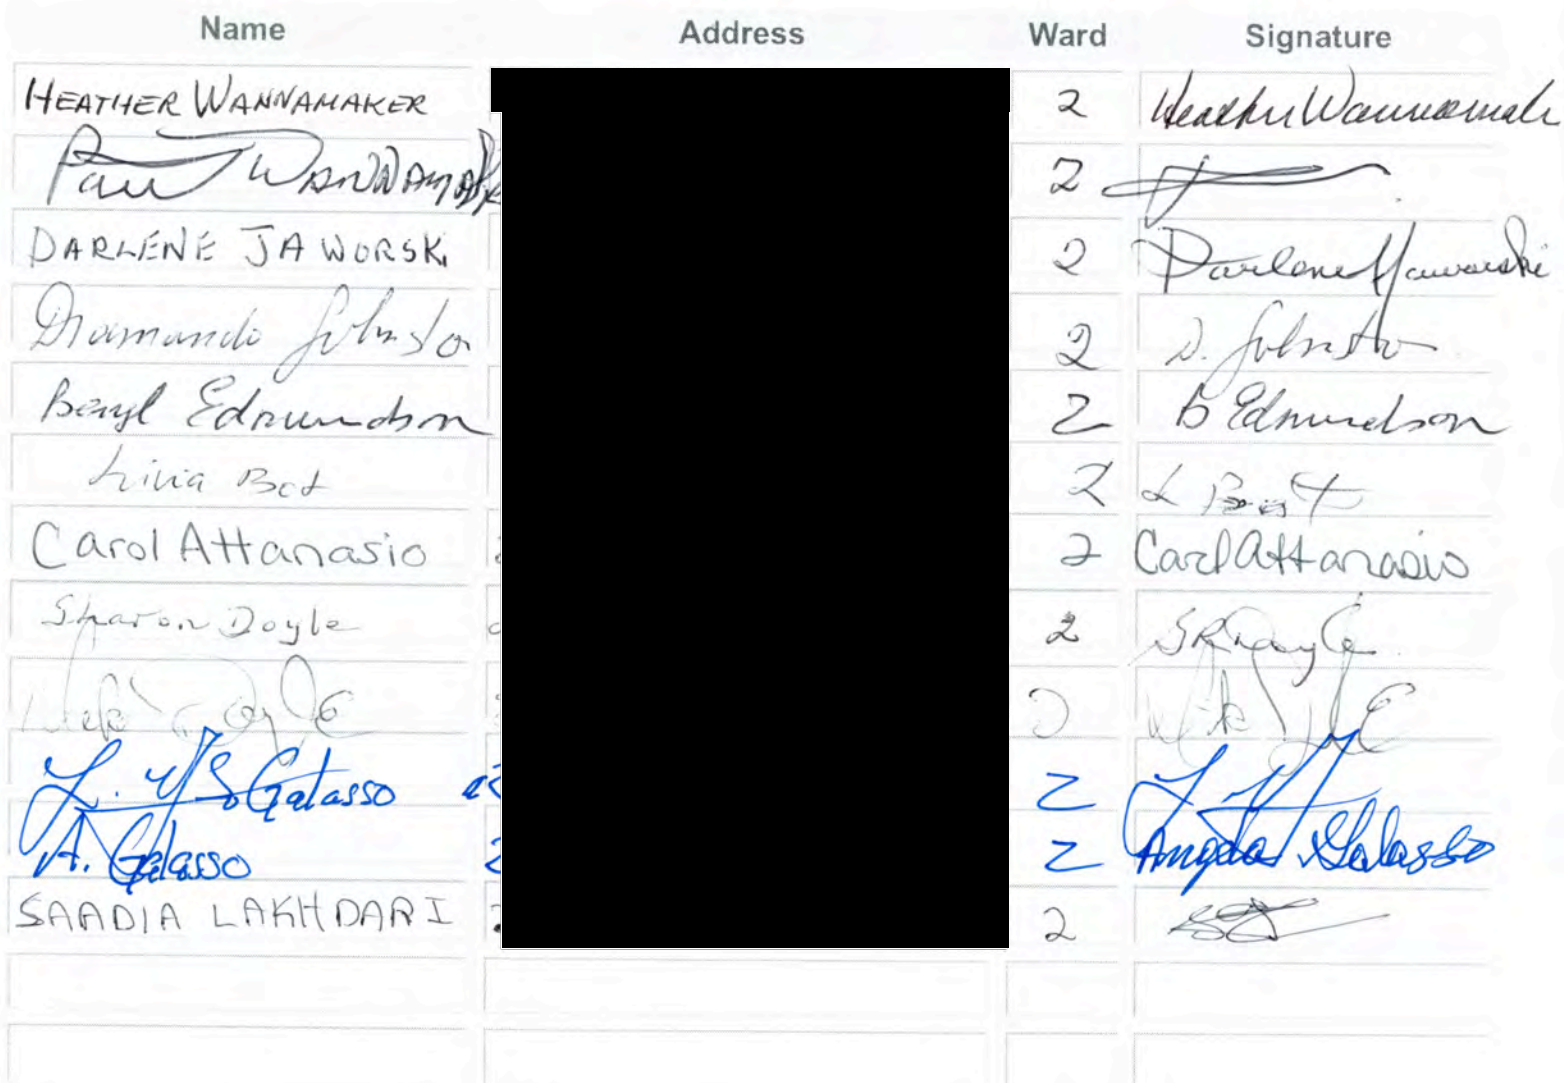 Name Address Ward Signature
HEATHER WANNAMAKER 2 Heather Wannamaker
Paul WANNAMAKER 2
DARLENE JAWORSKI 2 Darlene Jaworski
Johnston 2 D. Johnston
Beryl Edmundson 2 B Edmundson
Livia Bot 2 L Bot
Carol Attanasio 2 Carol Attanasio
Sharon Doyle 2 SR Doyle
Doyle 2
L. Galasso 2
A. Galasso 2 Angela Galasso
SAADIA LAKHDARI 2